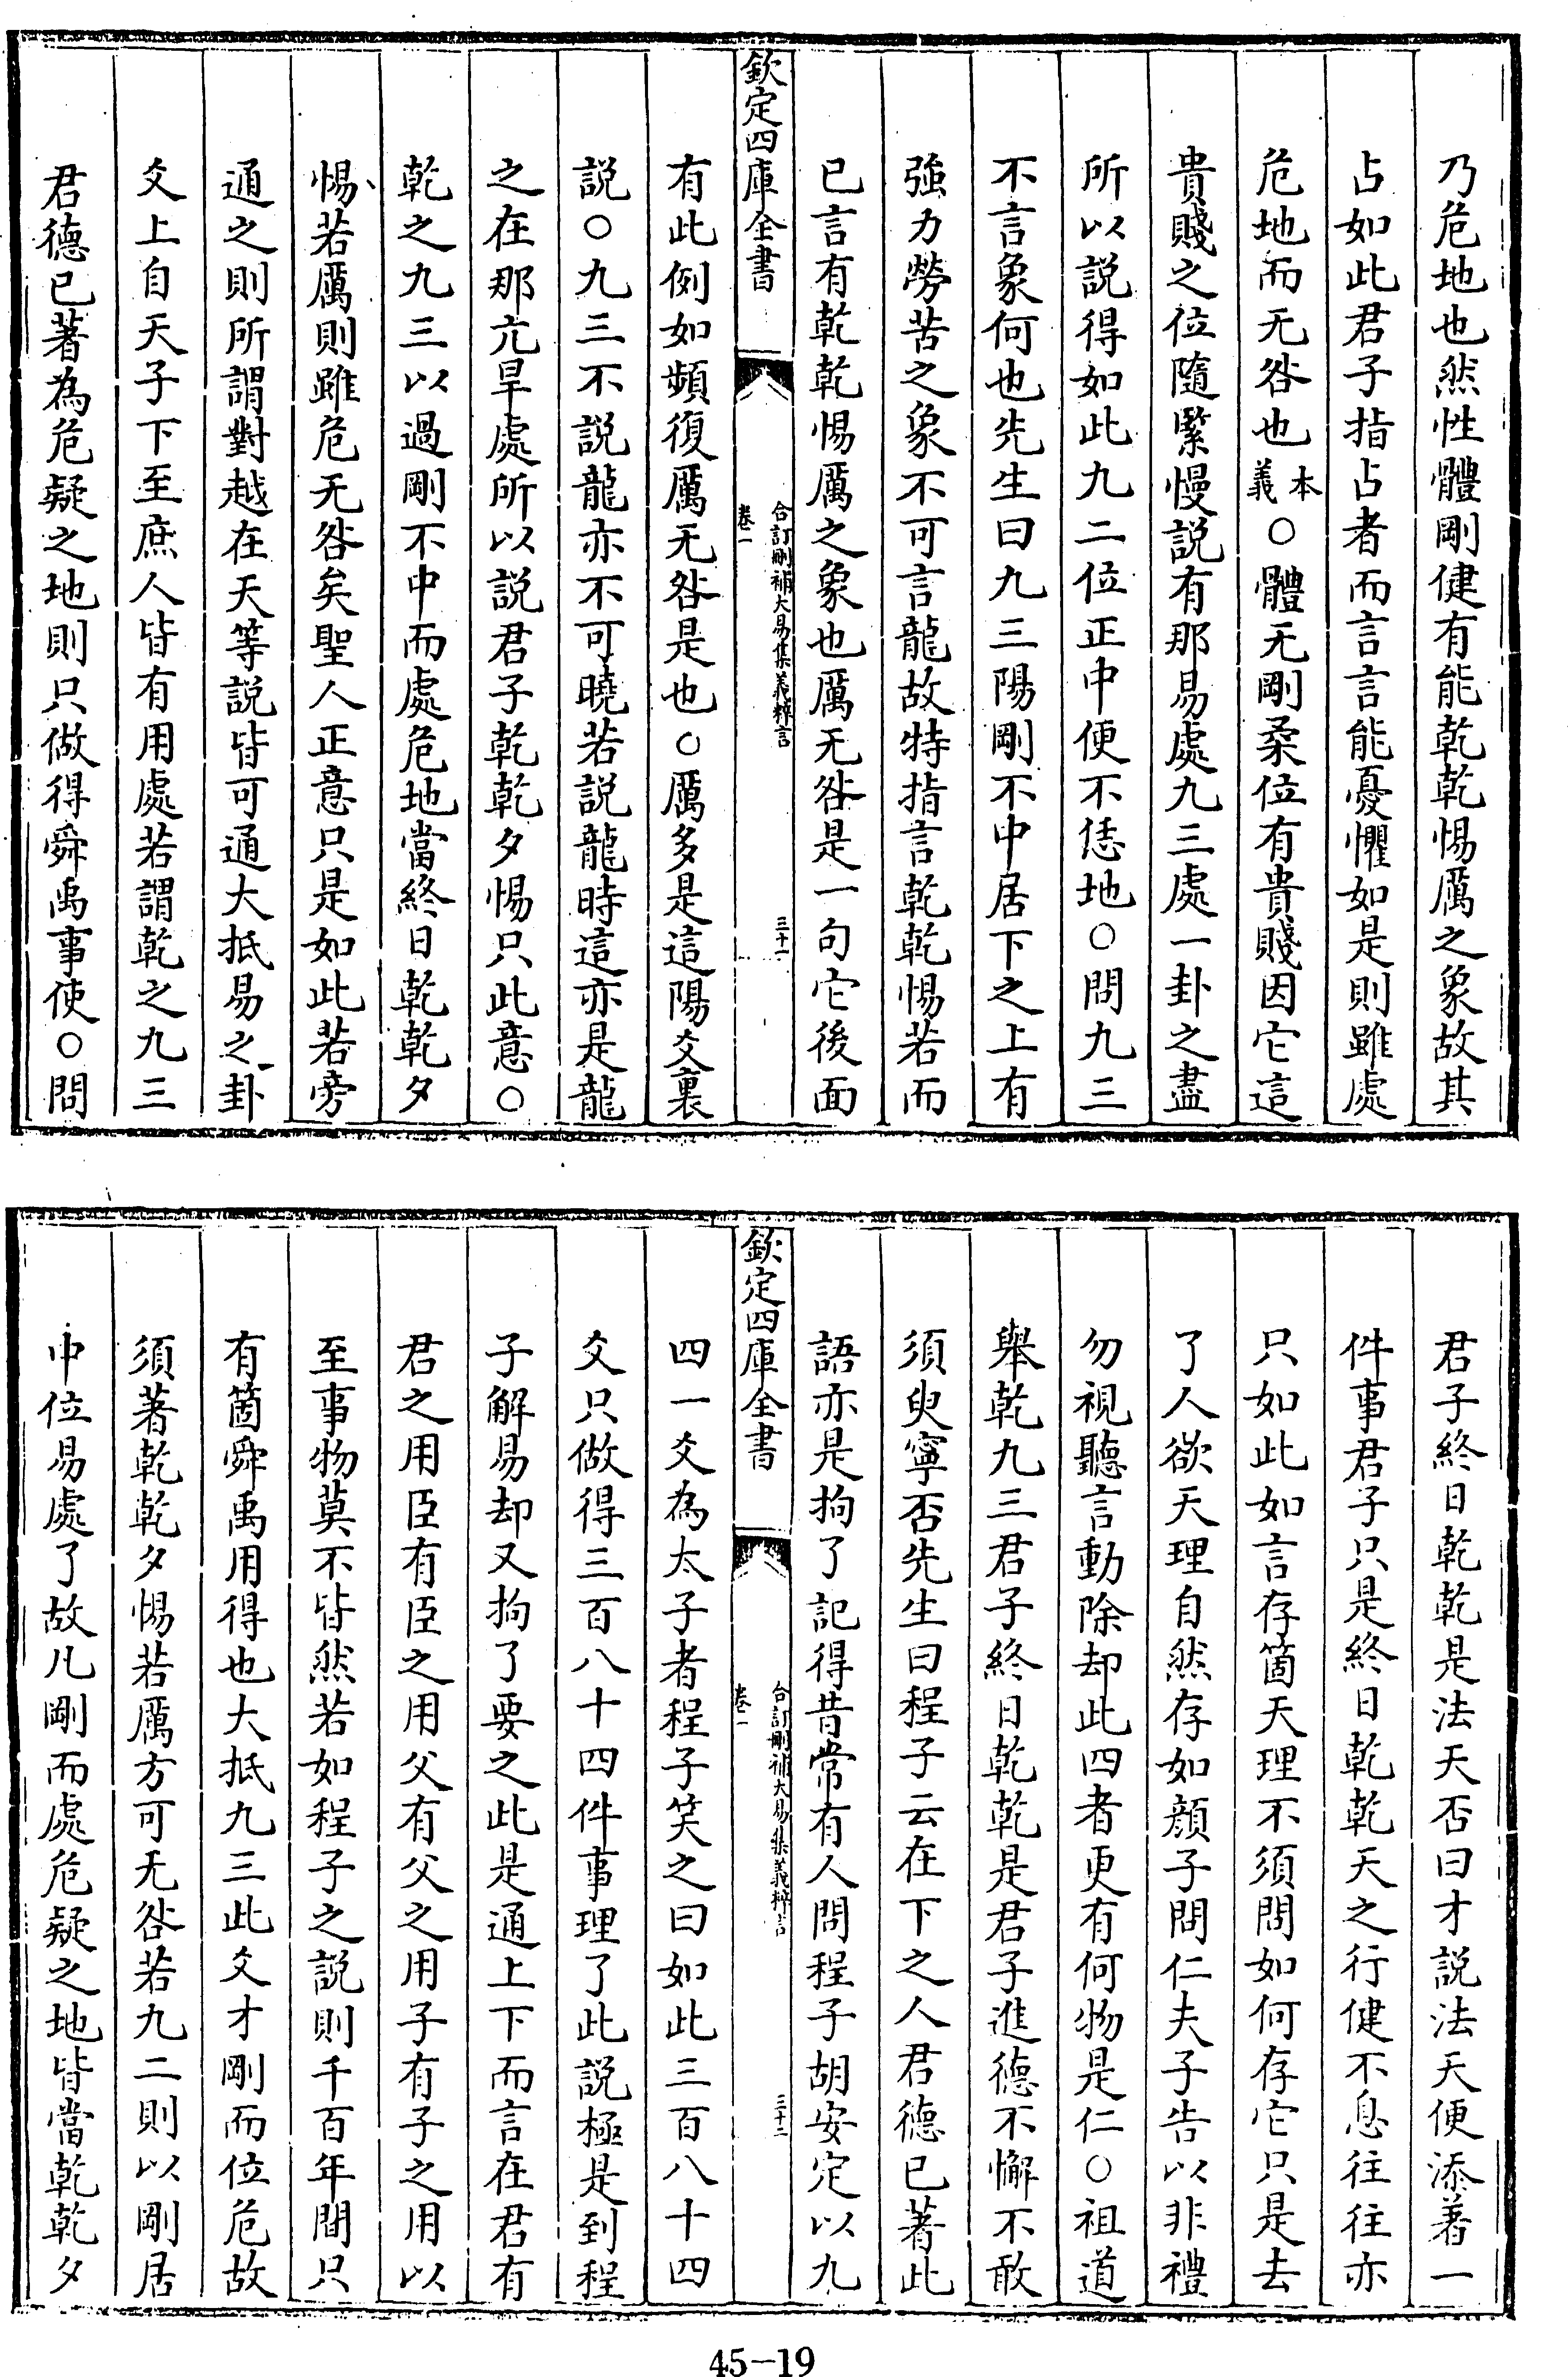 乃危地也然性體剛健有能乾乾惕厲之象故其
占如此君子指占者而言言能憂懼如是則雖處
危地而无咎也本義○體无剛柔位有貴賤因它這
貴賤之位隨緊慢説有那易處九三處一卦之盡
所以説得如此九二位正中便不恁地○問九三
不言象何也先生曰九三陽剛不中居下之上有
強力勞苦之象不可言龍故特指言乾乾惕若而
已言有乾乾惕厲之象也厲无咎是一句它後面
欽定四庫全書
合訂刪補大易集義粹言
卷一
三十一
有此例如頻復厲无咎是也○厲多是這陽爻裏
説○九三不説龍亦不可曉若説龍時這亦是龍
之在那亢旱處所以説君子乾乾夕惕只此意○
乾之九三以過剛不中而處危地當終日乾乾夕
惕若厲則雖危无咎矣聖人正意只是如此若旁
通之則所謂對越在天等説皆可通大抵易之卦
爻上自天子下至庶人皆有用處若謂乾之九三
君德已著為危疑之地則只做得舜禹事使○問
君子終日乾乾是法天否曰才説法天便添著一
件事君子只是終日乾乾天之行健不息往往亦
只如此如言存箇天理不須問如何存它只是去
了人欲天理自然存如顔子問仁夫子告以非禮
勿視聽言動除却此四者更有何物是仁○祖道
舉乾九三君子終日乾乾是君子進德不懈不敢
須臾寧否先生曰程子云在下之人君德已著此
語亦是拘了記得昔常有人問程子胡安定以九
欽定四庫全書
合訂刪補大易集義粹言
卷一
三十二
四一爻為太子者程子笑之曰如此三百八十四
爻只做得三百八十四件事理了此説極是到程
子解易却又拘了要之此是通上下而言在君有
君之用臣有臣之用父有父之用子有子之用以
至事物莫不皆然若如程子之説則千百年間只
有箇舜禹用得也大抵九三此爻才剛而位危故
須著乾乾夕惕若厲方可无咎若九二則以剛居
中位易處了故凡剛而處危疑之地皆當乾乾夕
45-19